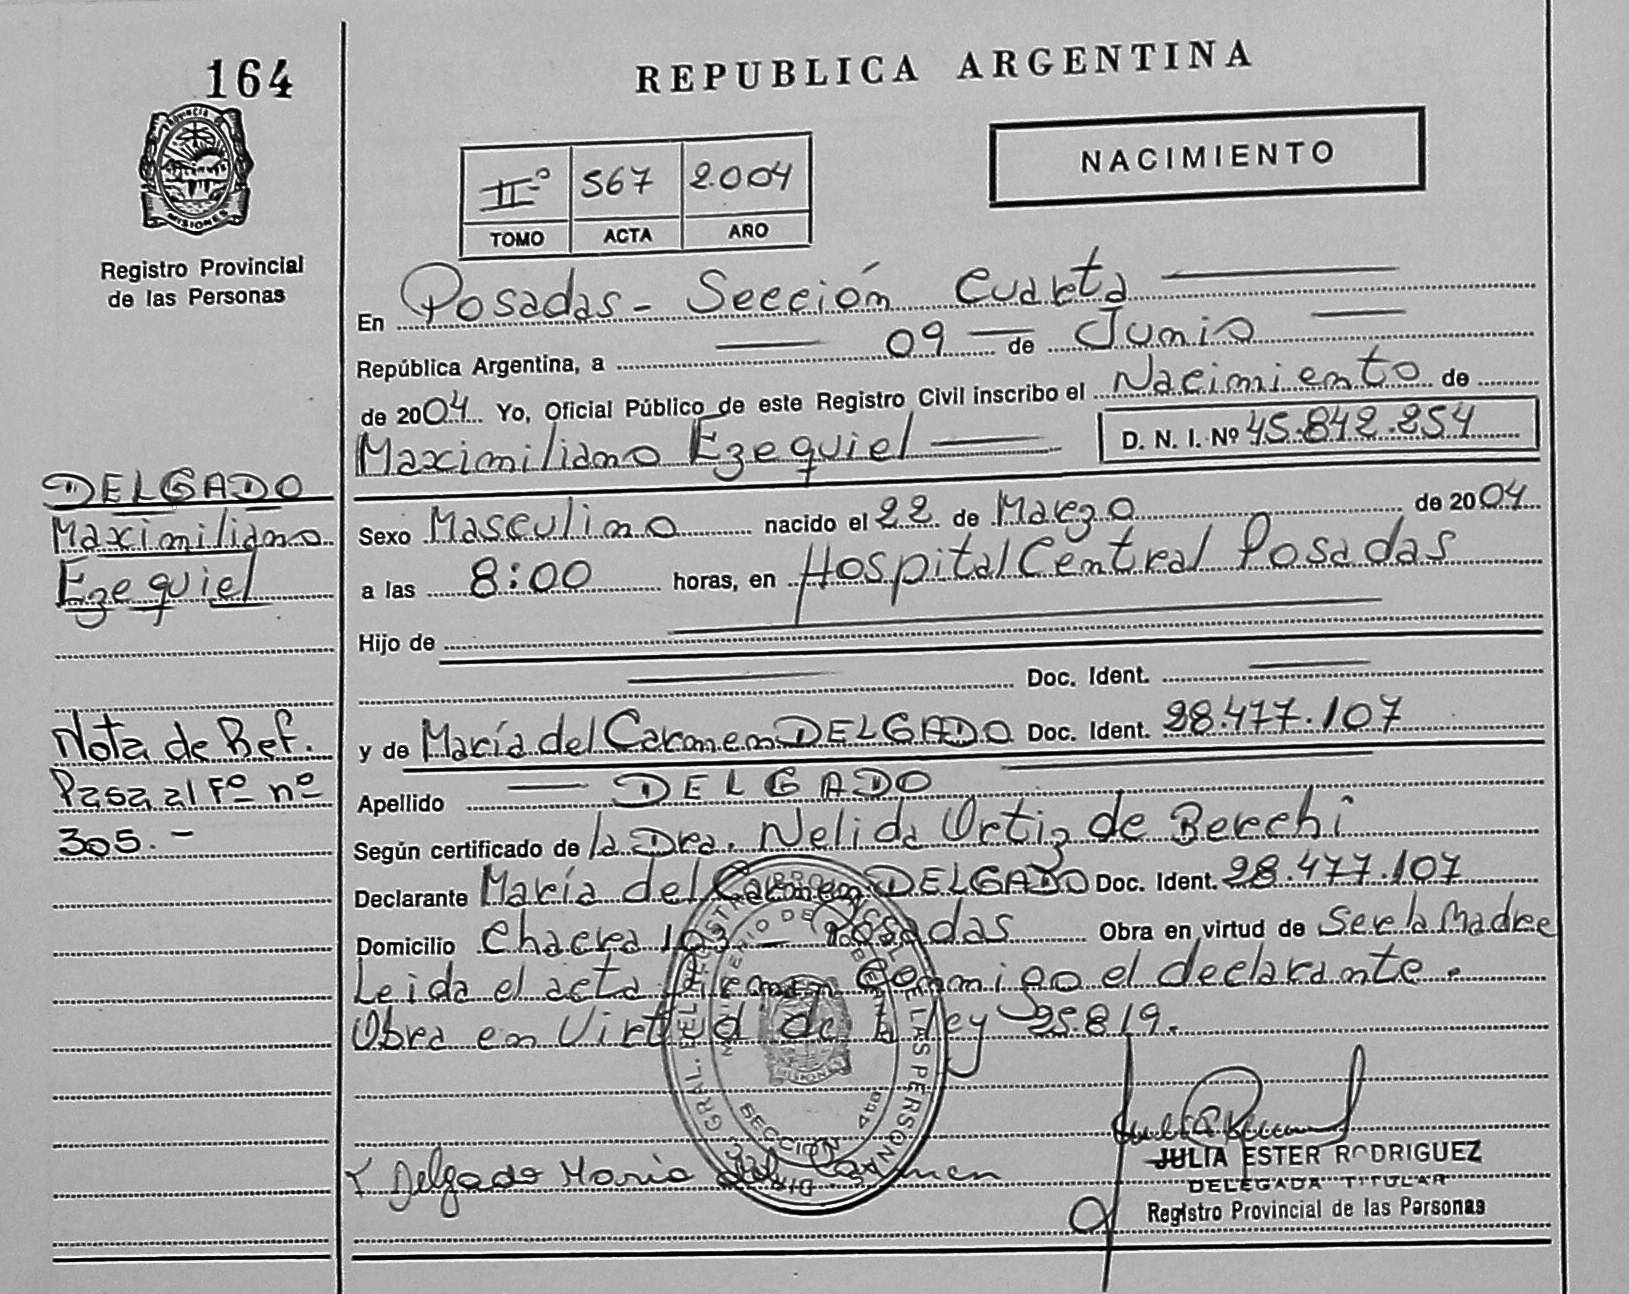 164
PROVINCIA DE
MISIONES
Registro Provincial
de las Personas
REPUBLICA ARGENTINA
IIº 567 2.004
TOMO ACTA AÑO
NACIMIENTO
En Posadas - Sección Cuarta
República Argentina, a 09 de Junio
de 2004 Yo, Oficial Público de este Registro Civil inscribo el Nacimiento de
Maximiliano Ezequiel D. N. I. Nº 45.842.254
Sexo Masculino nacido el 22 de Marzo de 2004
a las 8:00 horas, en Hospital Central Posadas
Hijo de
Doc. Ident.
y de María del Carmen DELGADO Doc. Ident. 28.477.107
Apellido DELGADO
Según certificado de la Dra. Nelida Ortiz de Berchi
Declarante María del Carmen DELGADO Doc. Ident. 28.477.107
Domicilio Chacra 103 - Posadas Obra en virtud de Ser la Madre
Leida el acta firman conmigo el declarante.
Obra en Virtud de la ley 25.819.
DELGADO
Maximiliano
Ezequiel
Nota de Ref.
Pasa al Fº nº
305.-
Delgado María del Carmen
SECCION 4ta
JULIA ESTER RODRIGUEZ
DELEGADA TITULAR
Registro Provincial de las Personas